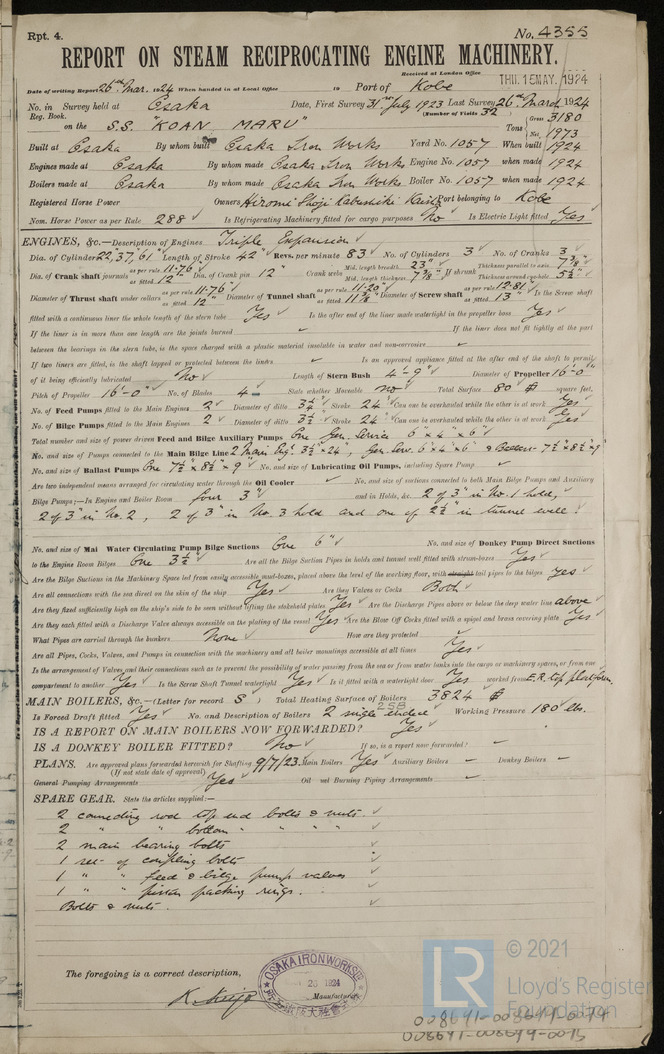 Rpt. 4. No. 4355
REPORT ON STEAM RECIPROCATING ENGINE MACHINERY.
Received at London Office THU. 15 MAY. 1924
Date of writing Report 26th Mar. 1924 When handed in at Local Office 19 Port of Kobe
No. in Survey held at Osaka Date, First Survey 31st July 1923 Last Survey 26th March 1924
Reg. Book. (Number of Visits 32)
on the S.S. "KOAN MARU" Tons Gross 3180 Net 1973
Built at Osaka By whom built Osaka Iron Works Yard No. 1057 When built 1924
Engines made at Osaka By whom made Osaka Iron Works Engine No. 1057 when made 1924
Boilers made at Osaka By whom made Osaka Iron Works Boiler No. 1057 when made 1924
Registered Horse Power Owners Hiromi Shoji Kabushiki Kaisha Port belonging to Kobe
Nom. Horse Power as per Rule 288 Is Refrigerating Machinery fitted for cargo purposes No Is Electric Light fitted Yes
ENGINES, &c.—Description of Engines Triple Expansion
Dia. of Cylinders 22", 37", 61" Length of Stroke 42" Revs. per minute 83 No. of Cylinders 3 No. of Cranks 3
Dia. of Crank shaft journals as per rule 11.76 as fitted 12" Dia. of Crank pin 12" Crank webs Mid. length breadth 23" Mid. length thickness 7 3/8" If shrunk Thickness parallel to axis 7 3/8" Thickness around eye-hole 5 1/2"
Diameter of Thrust shaft under collars as per rule 11.76 as fitted 12" Diameter of Tunnel shaft as per rule 11.20 as fitted 11 3/8" Diameter of Screw shaft as per rule 12.81 as fitted 13" Is the Screw shaft
fitted with a continuous liner the whole length of the stern tube Yes Is the after end of the liner made watertight in the propeller boss Yes
If the liner is in more than one length are the joints burned ✓ If the liner does not fit tightly at the part
between the bearings in the stern tube, is the space charged with a plastic material insoluble in water and non-corrosive ✓
If two liners are fitted, is the shaft lapped or protected between the liners ✓ Is an approved appliance fitted at the after end of the shaft to permit
of it being efficiently lubricated No Length of Stern Bush 4'-9" Diameter of Propeller 16'-0"
Pitch of Propeller 16'-0" No. of Blades 4 State whether Moveable no Total Surface 80 square feet.
No. of Feed Pumps fitted to the Main Engines 2 Diameter of ditto 3 1/4" Stroke 24" Can one be overhauled while the other is at work Yes
No. of Bilge Pumps fitted to the Main Engines 2 Diameter of ditto 3 1/2" Stroke 24" Can one be overhauled while the other is at work Yes
Total number and size of power driven Feed and Bilge Auxiliary Pumps One Gen. Service 6" x 4" x 6"
No. and size of Pumps connected to the Main Bilge Line 2 Main Eng. 3 1/2" x 24", Gen. Serv. 6" x 4" x 6" & Ballast 7 1/2" x 8 1/2" x 9"
No. and size of Ballast Pumps One 7 1/2" x 8 1/2" x 9" No. and size of Lubricating Oil Pumps, including Spare Pump ✓
Are two independent means arranged for circulating water through the Oil Cooler ✓ No. and size of suctions connected to both Main Bilge Pumps and Auxiliary
Bilge Pumps;—In Engine and Boiler Room four 3" and in Holds, &c. 2 of 3" in No. 1 hold,
2 of 3" in No. 2, 2 of 3" in No. 3 hold and one of 2 1/2" in tunnel well.
No. and size of Main Water Circulating Pump Bilge Suctions One 6" No. and size of Donkey Pump Direct Suctions
to the Engine Room Bilges One 3 1/2" Are all the Bilge Suction Pipes in holds and tunnel well fitted with strum-boxes Yes
Are the Bilge Suctions in the Machinery Space led from easily accessible mud-boxes, placed above the level of the working floor, with straight tail pipes to the bilges yes
Are all connections with the sea direct on the skin of the ship Yes Are they Valves or Cocks Both
Are they fixed sufficiently high on the ship's side to be seen without lifting the stokehold plates Yes Are the Discharge Pipes above or below the deep water line above
Are they each fitted with a Discharge Valve always accessible on the plating of the vessel Yes Are the Blow Off Cocks fitted with a spigot and brass covering plate Yes
What Pipes are carried through the bunkers None How are they protected ✓
Are all Pipes, Cocks, Valves, and Pumps in connection with the machinery and all boiler mountings accessible at all times Yes
Is the arrangement of Valves, and their connections such as to prevent the possibility of water passing from the sea or from water tanks into the cargo or machinery spaces, or from one
compartment to another Yes Is the Screw Shaft Tunnel watertight Yes Is it fitted with a watertight door Yes worked from E.R. top platform.
MAIN BOILERS, &c.—(Letter for record S) Total Heating Surface of Boilers 3824
Is Forced Draft fitted Yes No. and Description of Boilers 2 single ended 2SB Working Pressure 180 lbs.
IS A REPORT ON MAIN BOILERS NOW FORWARDED? Yes
IS A DONKEY BOILER FITTED? No If so, is a report now forwarded? —
PLANS. Are approved plans forwarded herewith for Shafting 9/7/23 Main Boilers Yes Auxiliary Boilers — Donkey Boilers —
(If not state date of approval)
General Pumping Arrangements Yes Oil Fuel Burning Piping Arrangements —
SPARE GEAR. State the articles supplied:—
2 connecting rod top end bolts & nuts. ✓
2 " " bottom " " " " ✓
2 main bearing bolts ✓
1 set of coupling bolts ✓
1 " " feed & bilge pump valves ✓
1 " " piston packing rings. ✓
Bolts & nuts. ✓
The foregoing is a correct description,
OSAKA IRON WORKS LTD
25 1924
Manufacturer.
LR © 2021
Lloyd's Register
Foundation
008691-008699-0074
008691-008699-0075